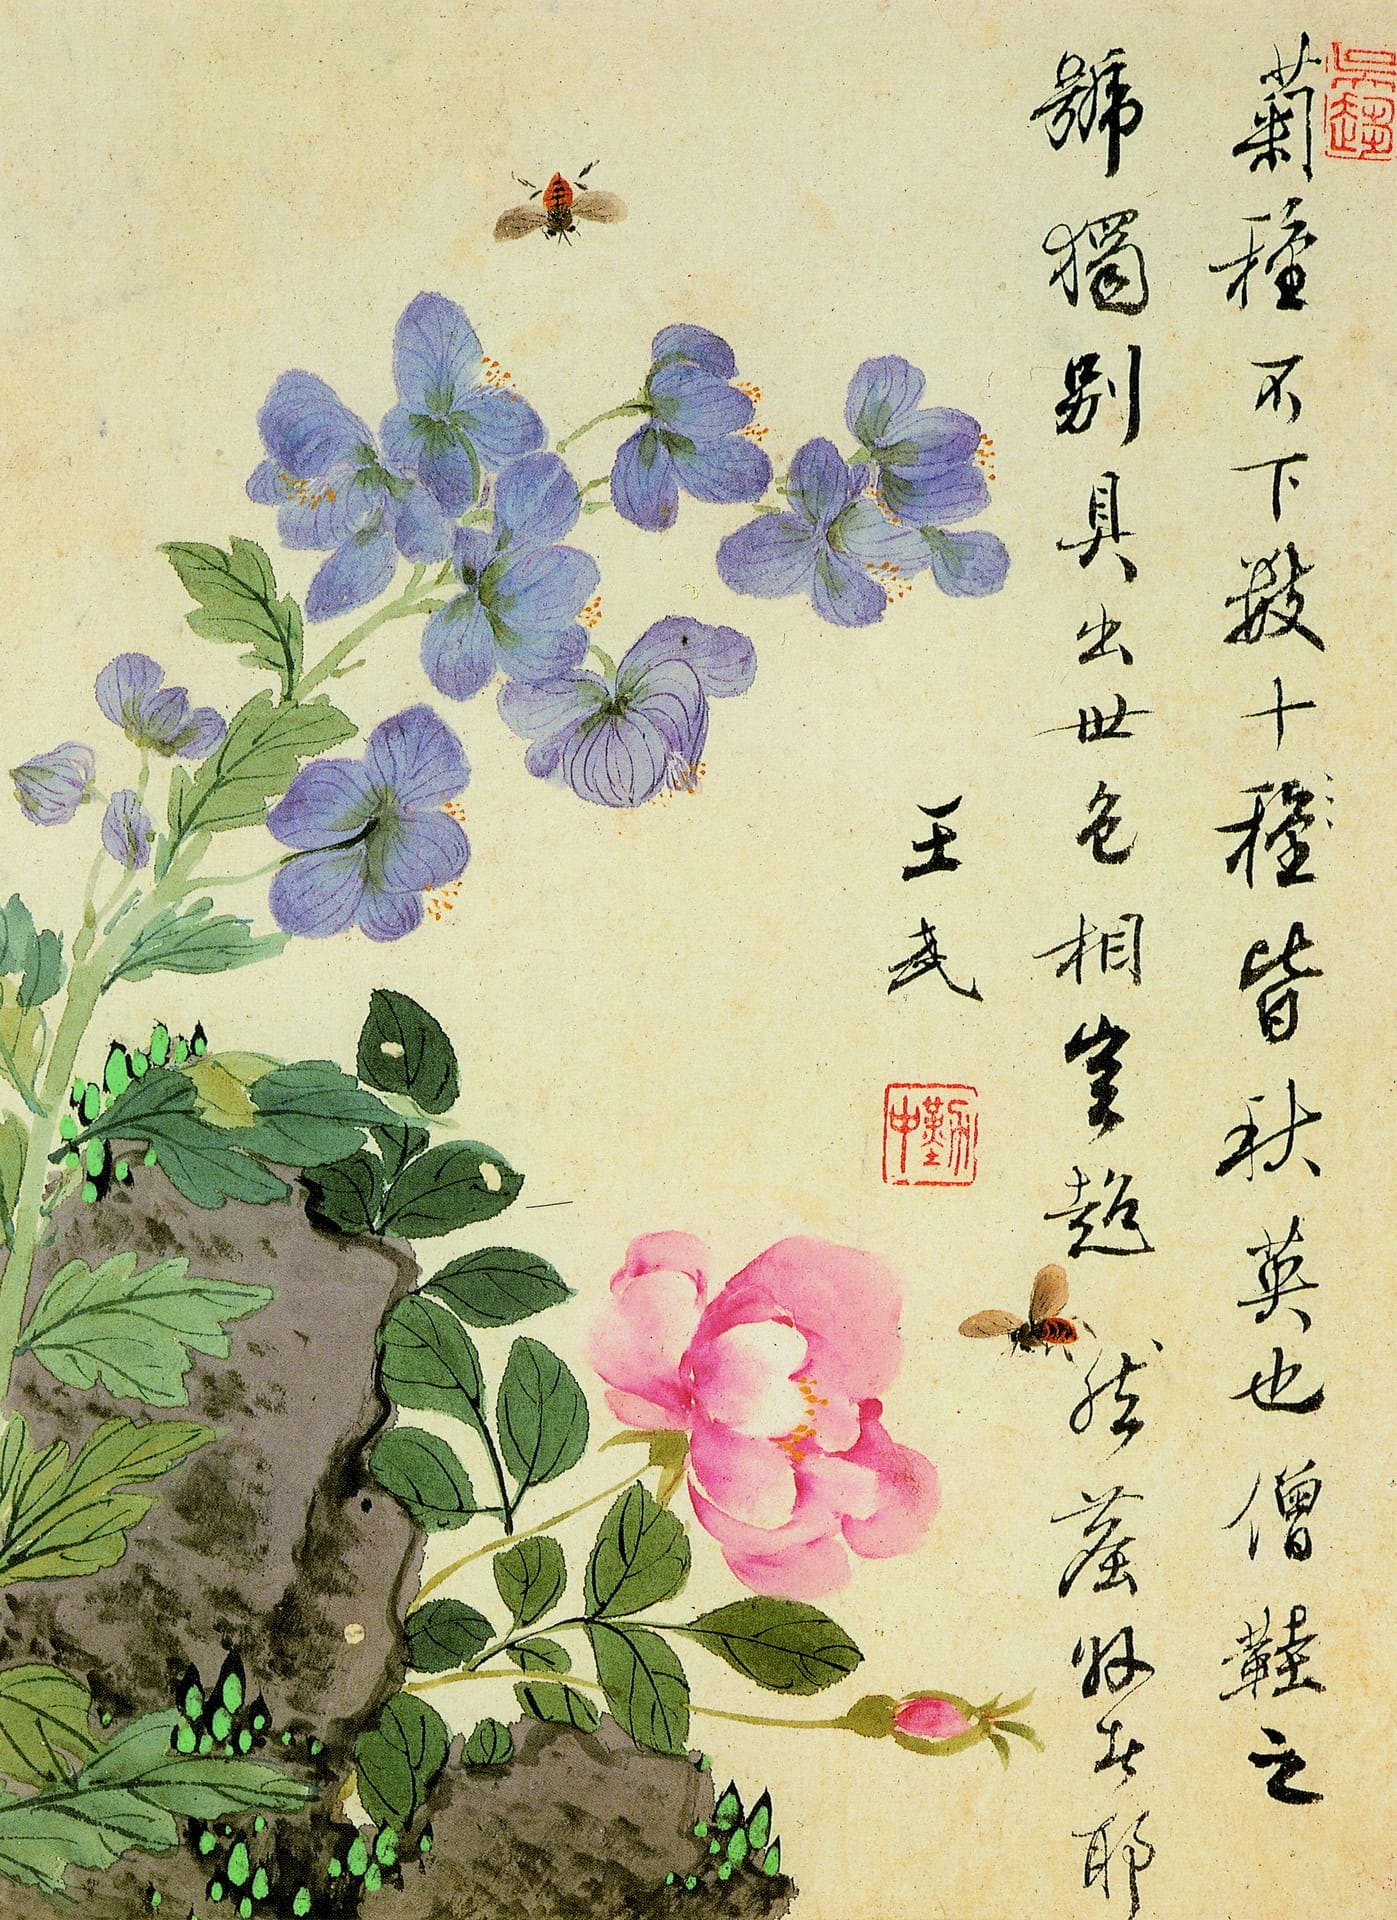 菊種不下數十種皆秋英也僧鞋之
號獨別具出世色相豈超然塵外者耶
王武
吳趨
勤中